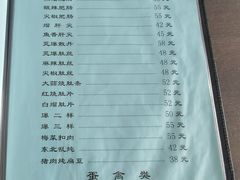 椒辣肥肠 55 元
尖椒肥肠 55 元
熘肝尖 42 元
鱼香肝尖 45 元
芫爆散丹 58 元
芫爆肚丝 48 元
麻辣肚丝 48 元
尖椒肚丝 48 元
大蒜烧肚条 52 元
红烧肚片 52 元
白熘肚片 52 元
爆二样 50 元
爆三样 55 元
梅菜扣肉 55 元
东北乱炖 42 元
猪肉炖扁豆 38 元
蛋禽类